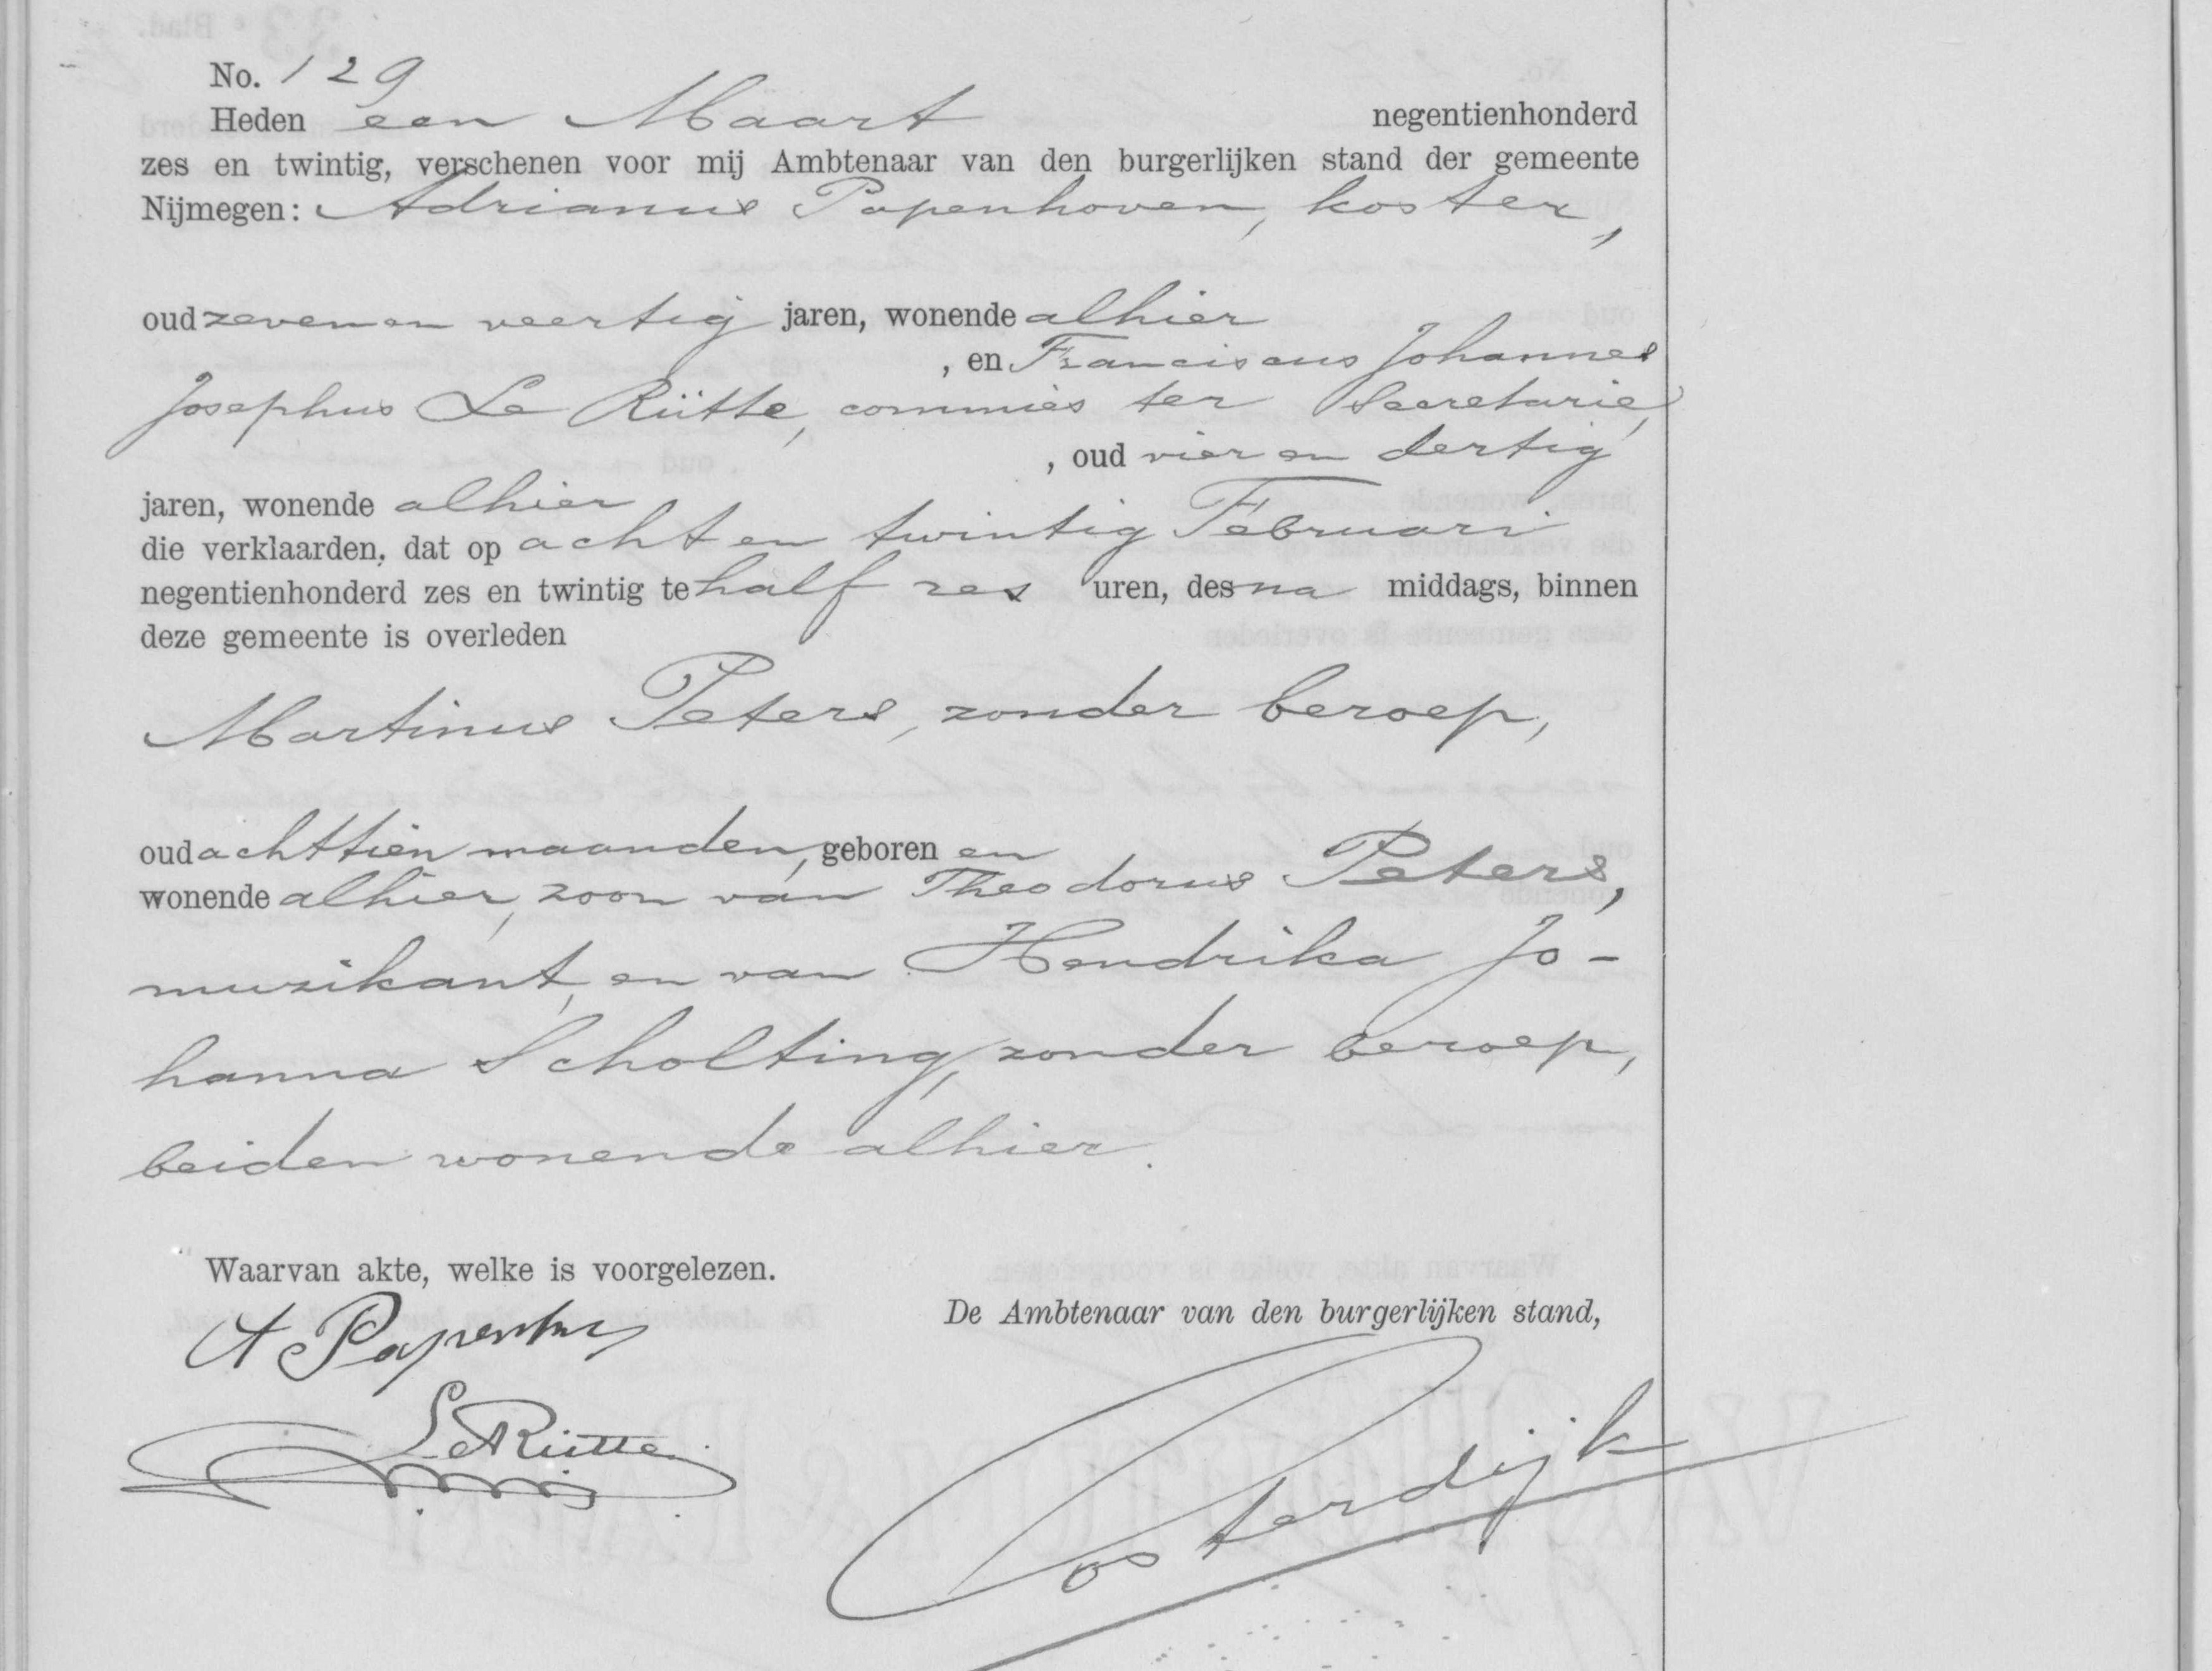 No. 129
Heden een Maart negentienhonderd
zes en twintig, verschenen voor mij Ambtenaar van den burgerlijken stand der gemeente
Nijmegen: Adrianus Papenhoven, koster,
oud zeven en veertig jaren, wonende alhier
, en Franciscus Johannes
Josephus Le Rütte, commies ter Secretarie,
, oud vier en dertig
jaren, wonende alhier
die verklaarden, dat op acht en twintig Februari
negentienhonderd zes en twintig te half zes uren, des na middags, binnen
deze gemeente is overleden
Martinus Peters, zonder beroep,
oud achttien maanden, geboren en
wonende alhier, zoon van Theodorus Peters,
muzikant, en van Hendrika Jo-
hanna Scholting, zonder beroep,
beiden wonende alhier.
Waarvan akte, welke is voorgelezen.
De Ambtenaar van den burgerlijken stand,
A Papenhoven
LeRütte
Oosterdijk